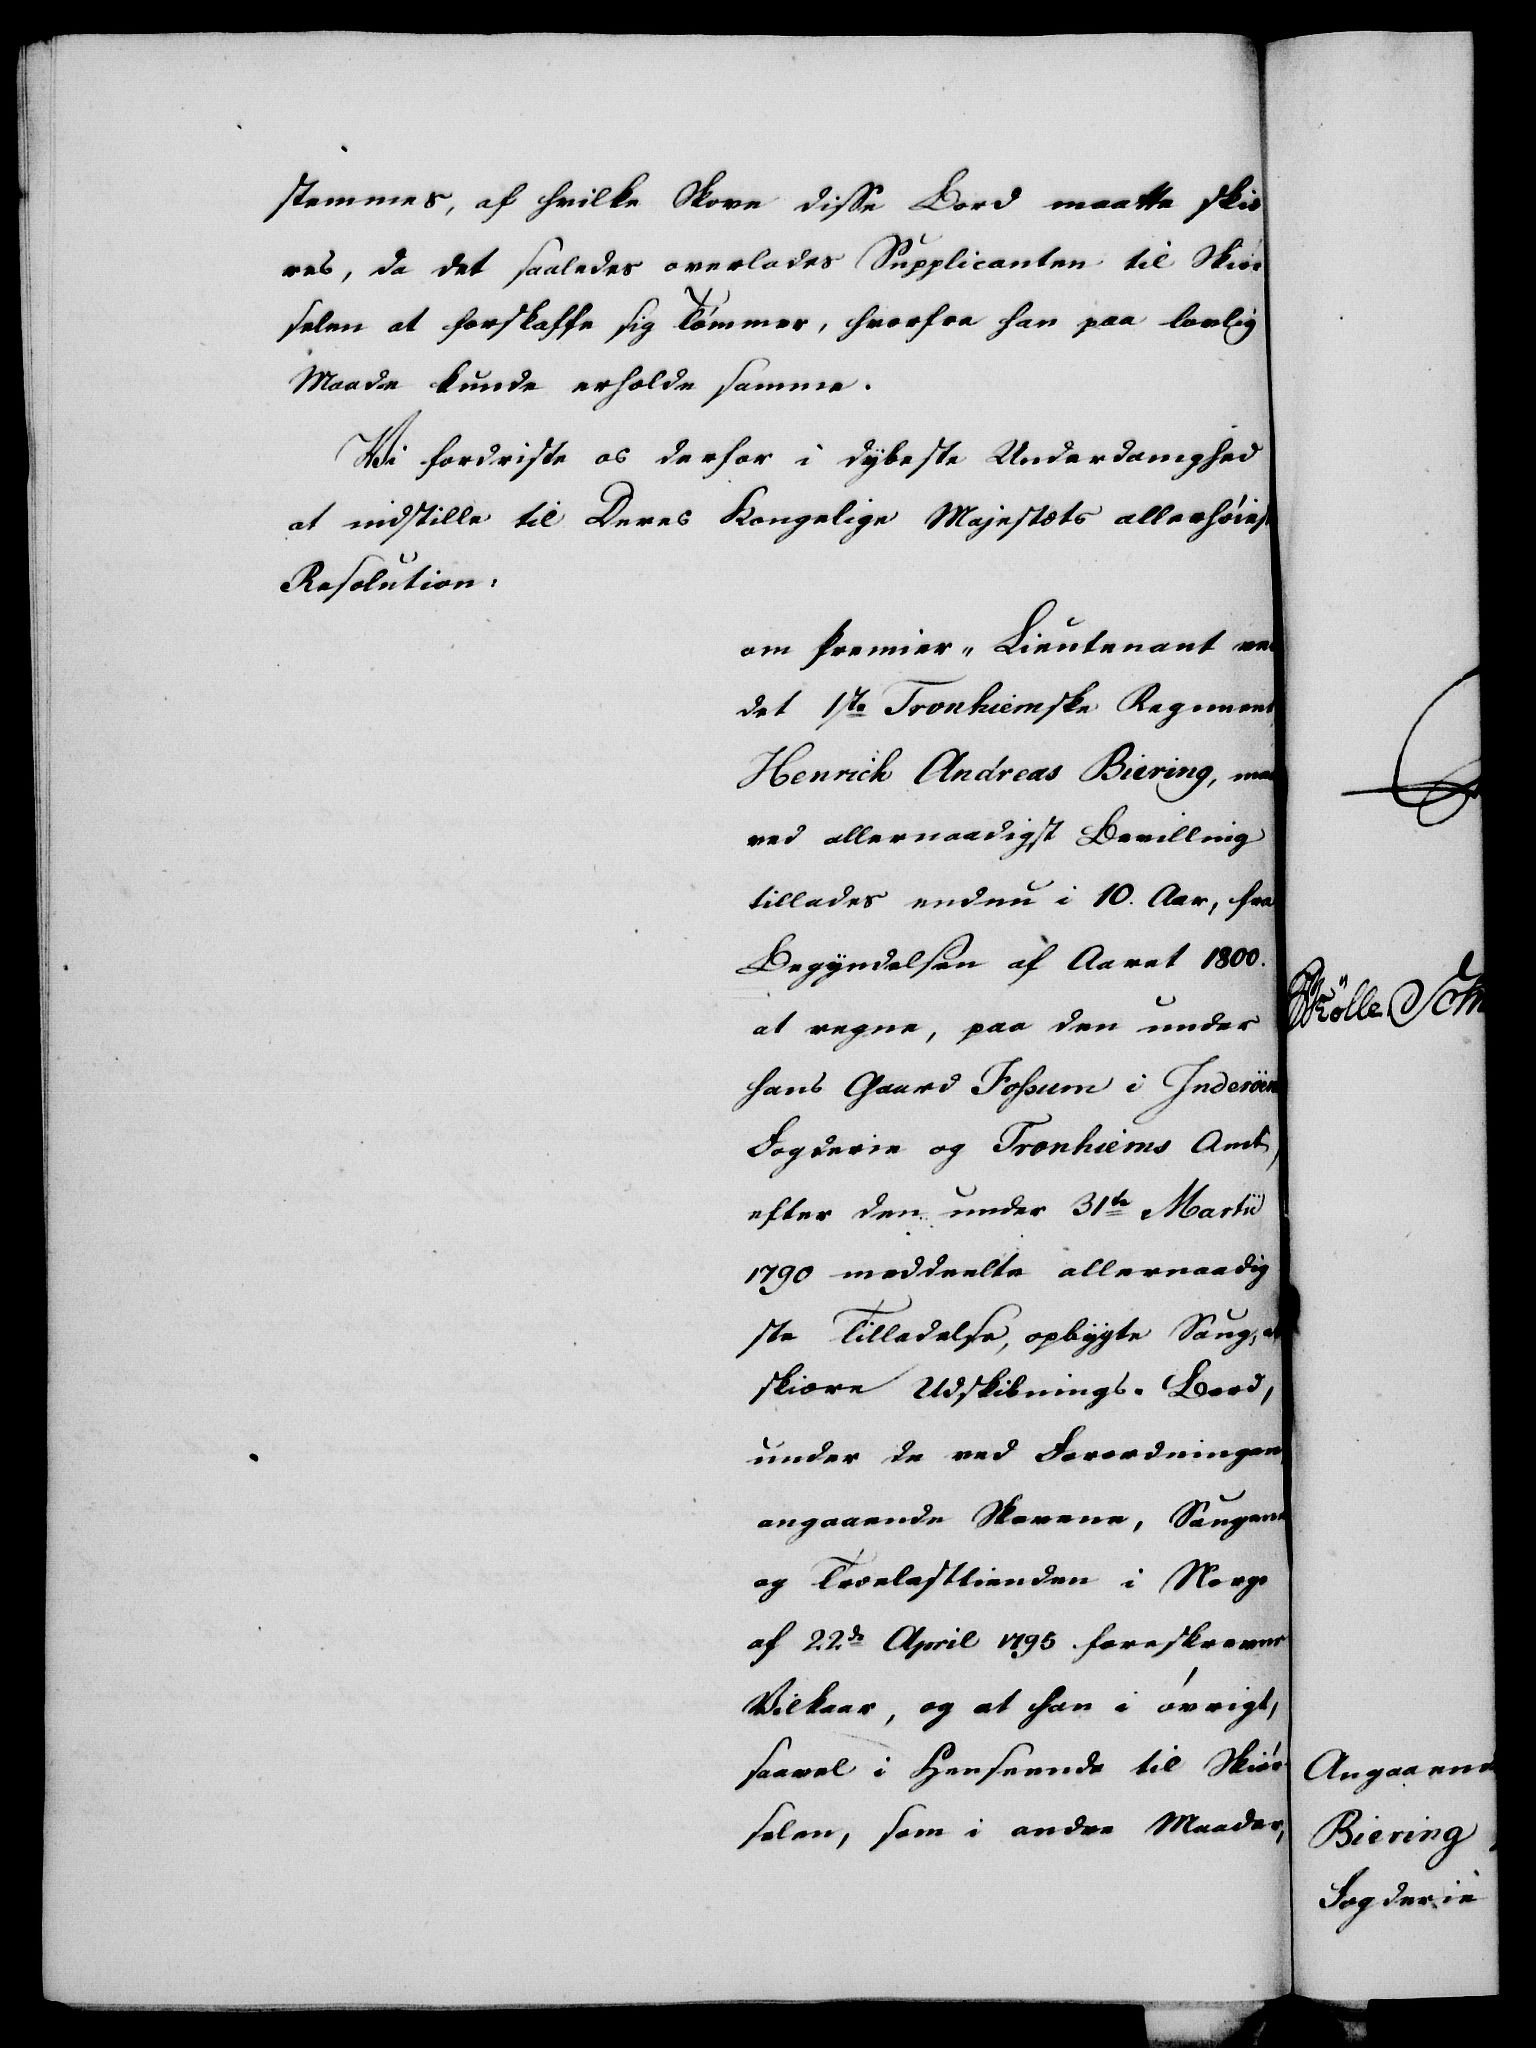 stemmes, af hvilke Skove disse Bord maatte skiæ
res, da det saaledes overlades Supplicanten til Skiær
selen at forskaffe sig Tömmer, hvorfra han paa lovlig
Maade kunde erholde samme.
Vi fordriste os derfor i dybeste Underdanighed
at indstille til Deres Kongelige Majestæts allerhöieste
Resolution:
om Premier-Lieutenant ved
det 1ste Tronhiemske Regiment
Henrich Andreas Biering, maa
ved allernaadigst Bevilling
tillades endnu i 10. Aar, fra
Begyndelsen af Aaret 1800.
at regne, paa den under
hans Gaard Fossum i Inderöens
Fogderie og Tronhiems Amt,
efter den under 31te Martii
1790 meddeelte allernaadig
ste Tilladelse, opbygte Saug, at
skiære Udskibnings-Bord,
under de ved Forordningen
angaaende Skovene, Saugene
og Trælasttienden i Norge
af 22de April 1795 foreskrevne
Vilkaar, og at han i övrigt,
saavel i Henseende til Skiær
selen, som i andre Maader,
Angaaende
Biering
Fogderie